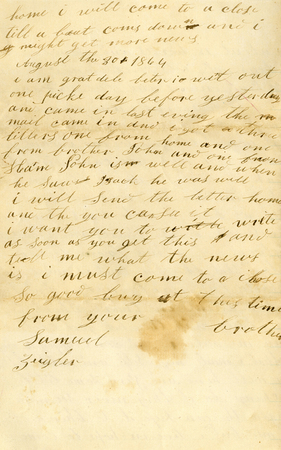 home i will come to a close
till a feat coms down and i
might get more news
August the 30th 1864
i am gratdele beter io wet out
one picks day before yesterday
and came in last evning the
mail came in and i got a three
litters one from home and one
from brother John and one from
John is well and when
he saw he was well
i will send the letter home
and the you can it
i want you to write
as soon as you get this and
tell me what the news
is i must come to a close
so good buy at this time
from your brother
Samuel
Zeigler